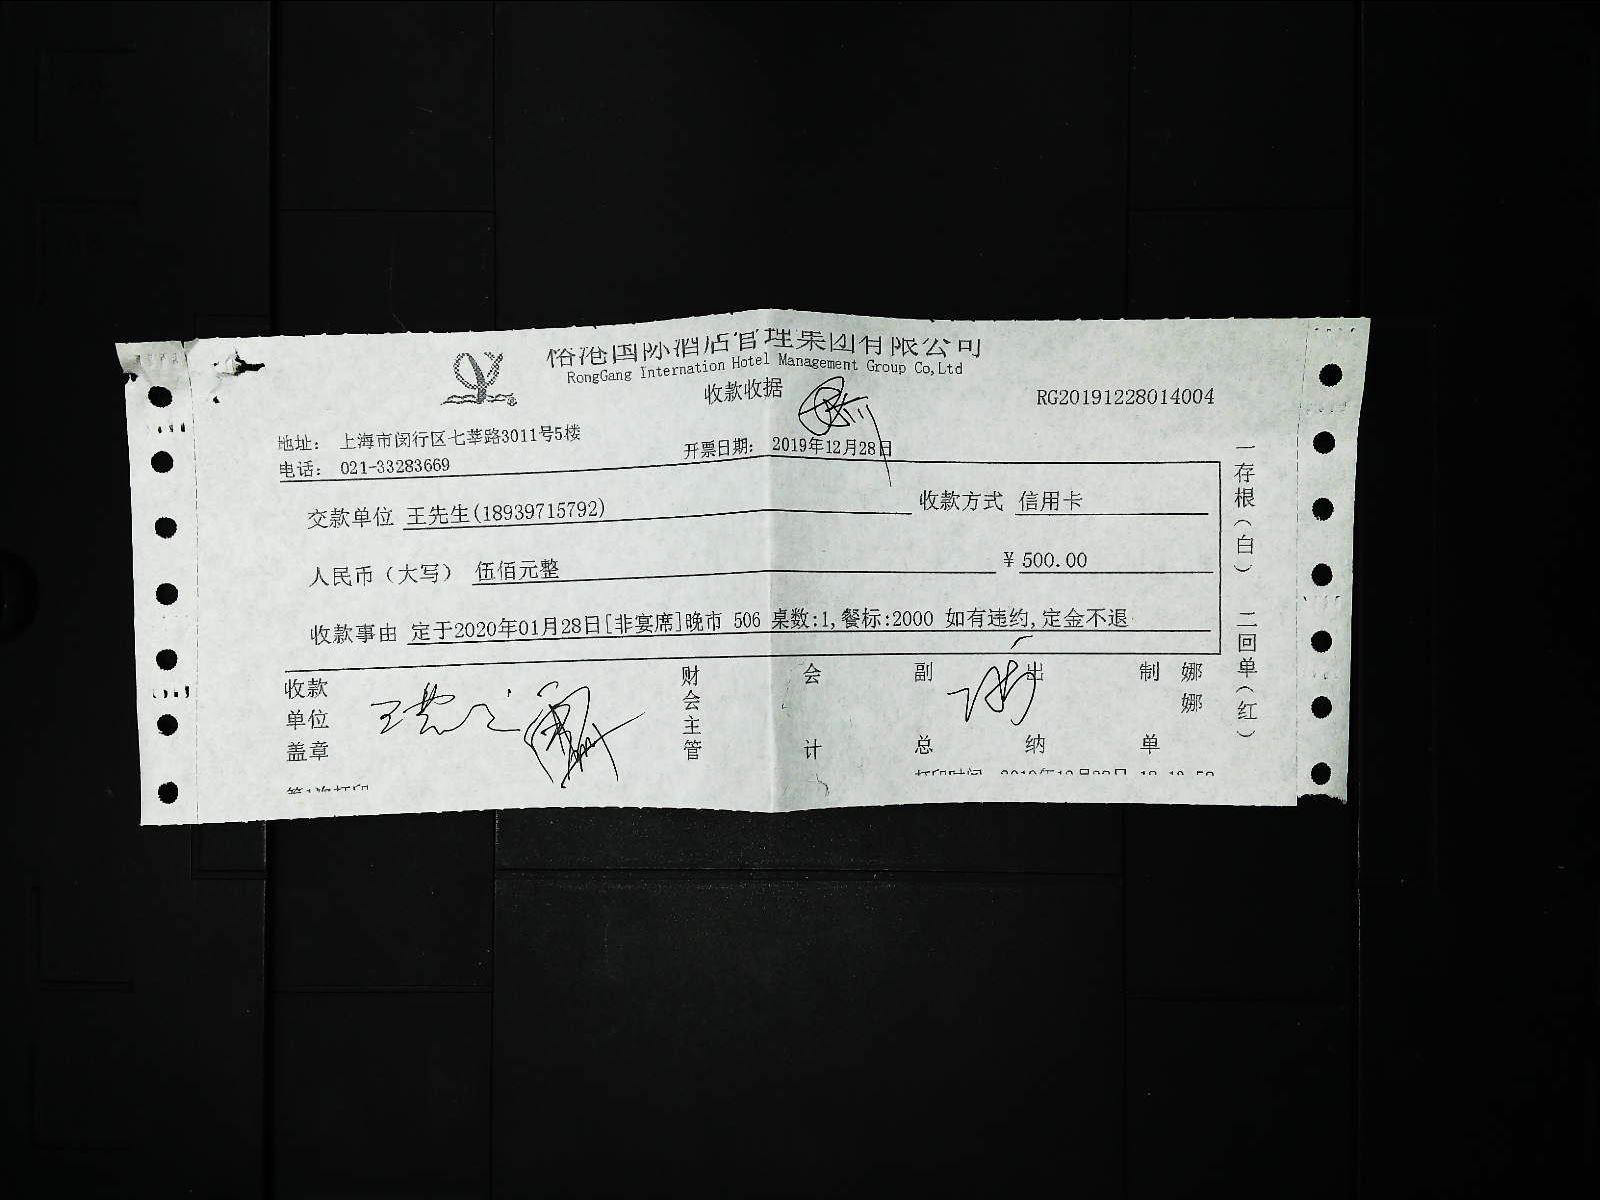 国际酒店管理集团有限公司
RongGang Internation Hotel Management Group Co,Ltd
收款收据
RG20191228014004
地址： 上海市闵行区七莘路3011号5楼
电话： 021-33283669
开票日期： 2019年12月28日
交款单位 王先生(18939715792)
收款方式 信用卡
人民币（大写） 伍佰元整
¥ 500.00
收款事由 定于2020年01月28日[非宴席]晚市 506 桌数:1,餐标:2000 如有违约,定金不退
收款单位盖章
财会主管
会计
副总
出纳
制单
娜娜
一存根(白) 二回单(红)